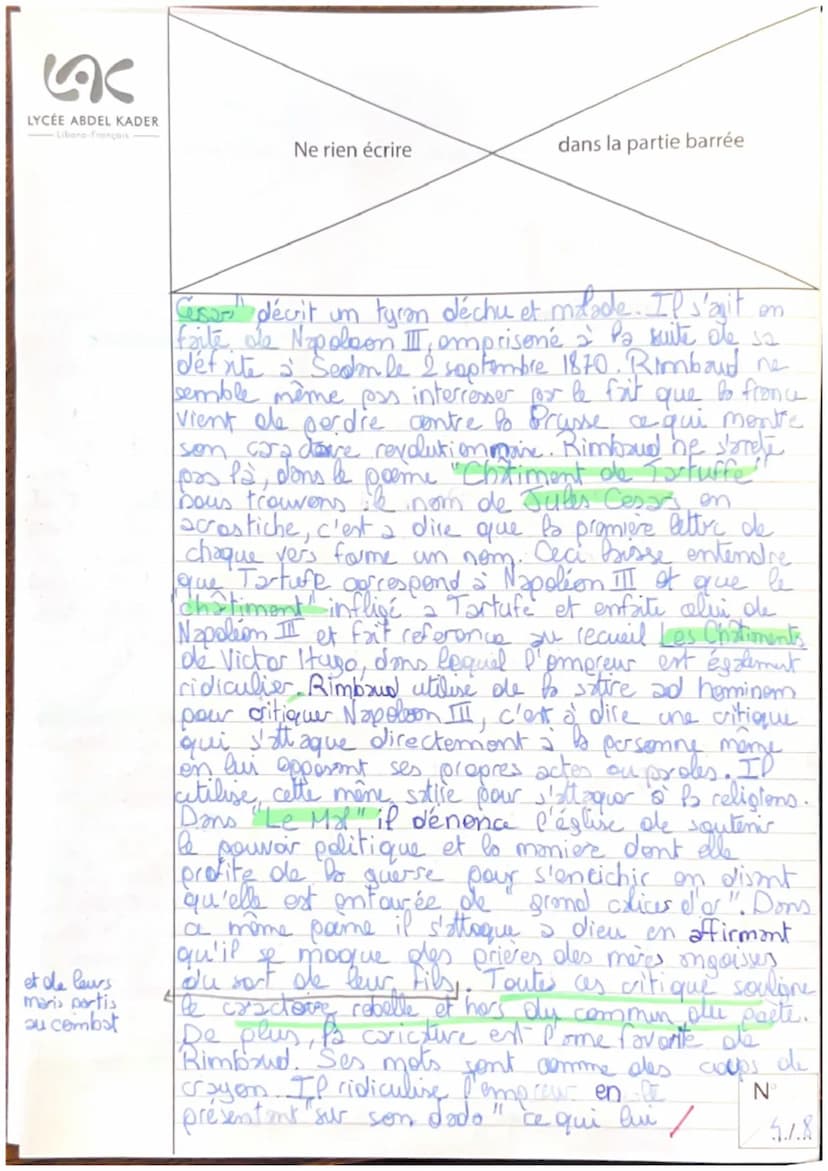 LYCÉE ABDEL KADER
Libano-Français
Ne rien écrire
dans la partie barrée
César" décrit un tyran déchu et malade. Il s'agit en
faite de Napoleon III, emprisoné à la suite de sa
défaite à Sedan le 2 septembre 1870. Rimbaud ne
semble même pas interresser par le fait que la france
vient de perdre contre la Prusse ce qui montre
son caractère revolutionnaire. Rimbaud ne s'arrete
pas là, dans le poème "Châtiment de Tartuffe"
nous trouvons le nom de Jules Cesar en
acrostiche, c'est a dire que la première lettre de
chaque vers forme un nom. Ceci laisse entendre
que Tartufe correspond à Napoléon III et que le
"châtiment" infligé a Tartufe et enfaite celui de
Napoléon III et fait reference au recueil Les Chatiments
de Victor Hugo, dans lequel l'empereur est également
ridiculier. Rimbaud utilise de la satire ad hominem
pour critiquer Napoleon III, c'est à dire une critique
qui s'attaque directement à la personne même
en lui opposant ses propres actes ou paroles. Il
utilise cette même satire pour s'attaquer à la religions.
Dans "Le Mal" il dénonce l'église de soutenir
le pouvoir politique et la maniere dont elle
profite de la guerre pour s'enrichir en disant
qu'elle est entourée de "grand calices d'or". Dans
ce même poème il s'attaque a dieu en affirmant
qu'il se moque des prières des mères angoisées
du sort de leur fils. Toutes ces critique souligne
et de leurs
maris partis
au combat
le caractere rebelle et hors du commun du poète.
De plus, la caricature est l'arme favorite de
Rimbaud. Ses mots sont comme des coups de
crayon. Il ridiculise l'empreur en le
présentant "sur son dada" ce qui lui /
N°
4/8